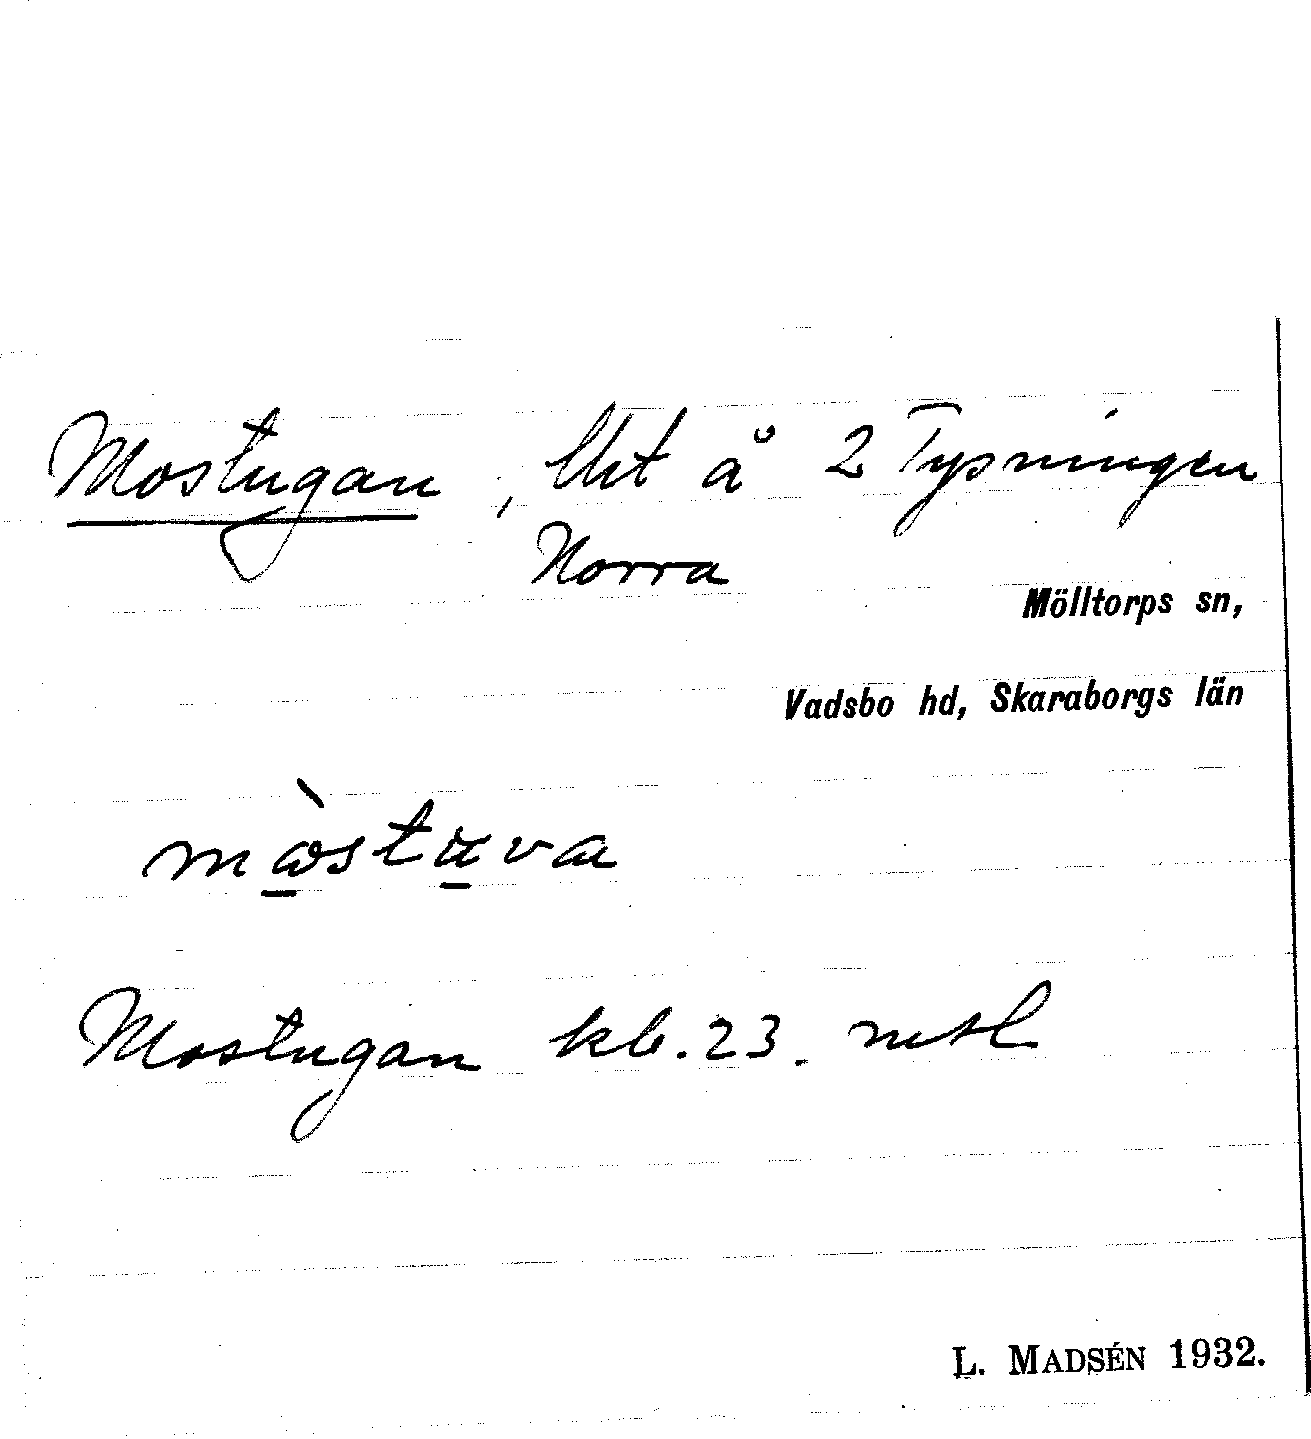 Mostugan, lht å 2 Tysningen
Norra
Mölltorps sn,
Vadsbo hd, Skaraborgs län
Mostugan kb. 23. mtl
L. MADSÉN 1932.